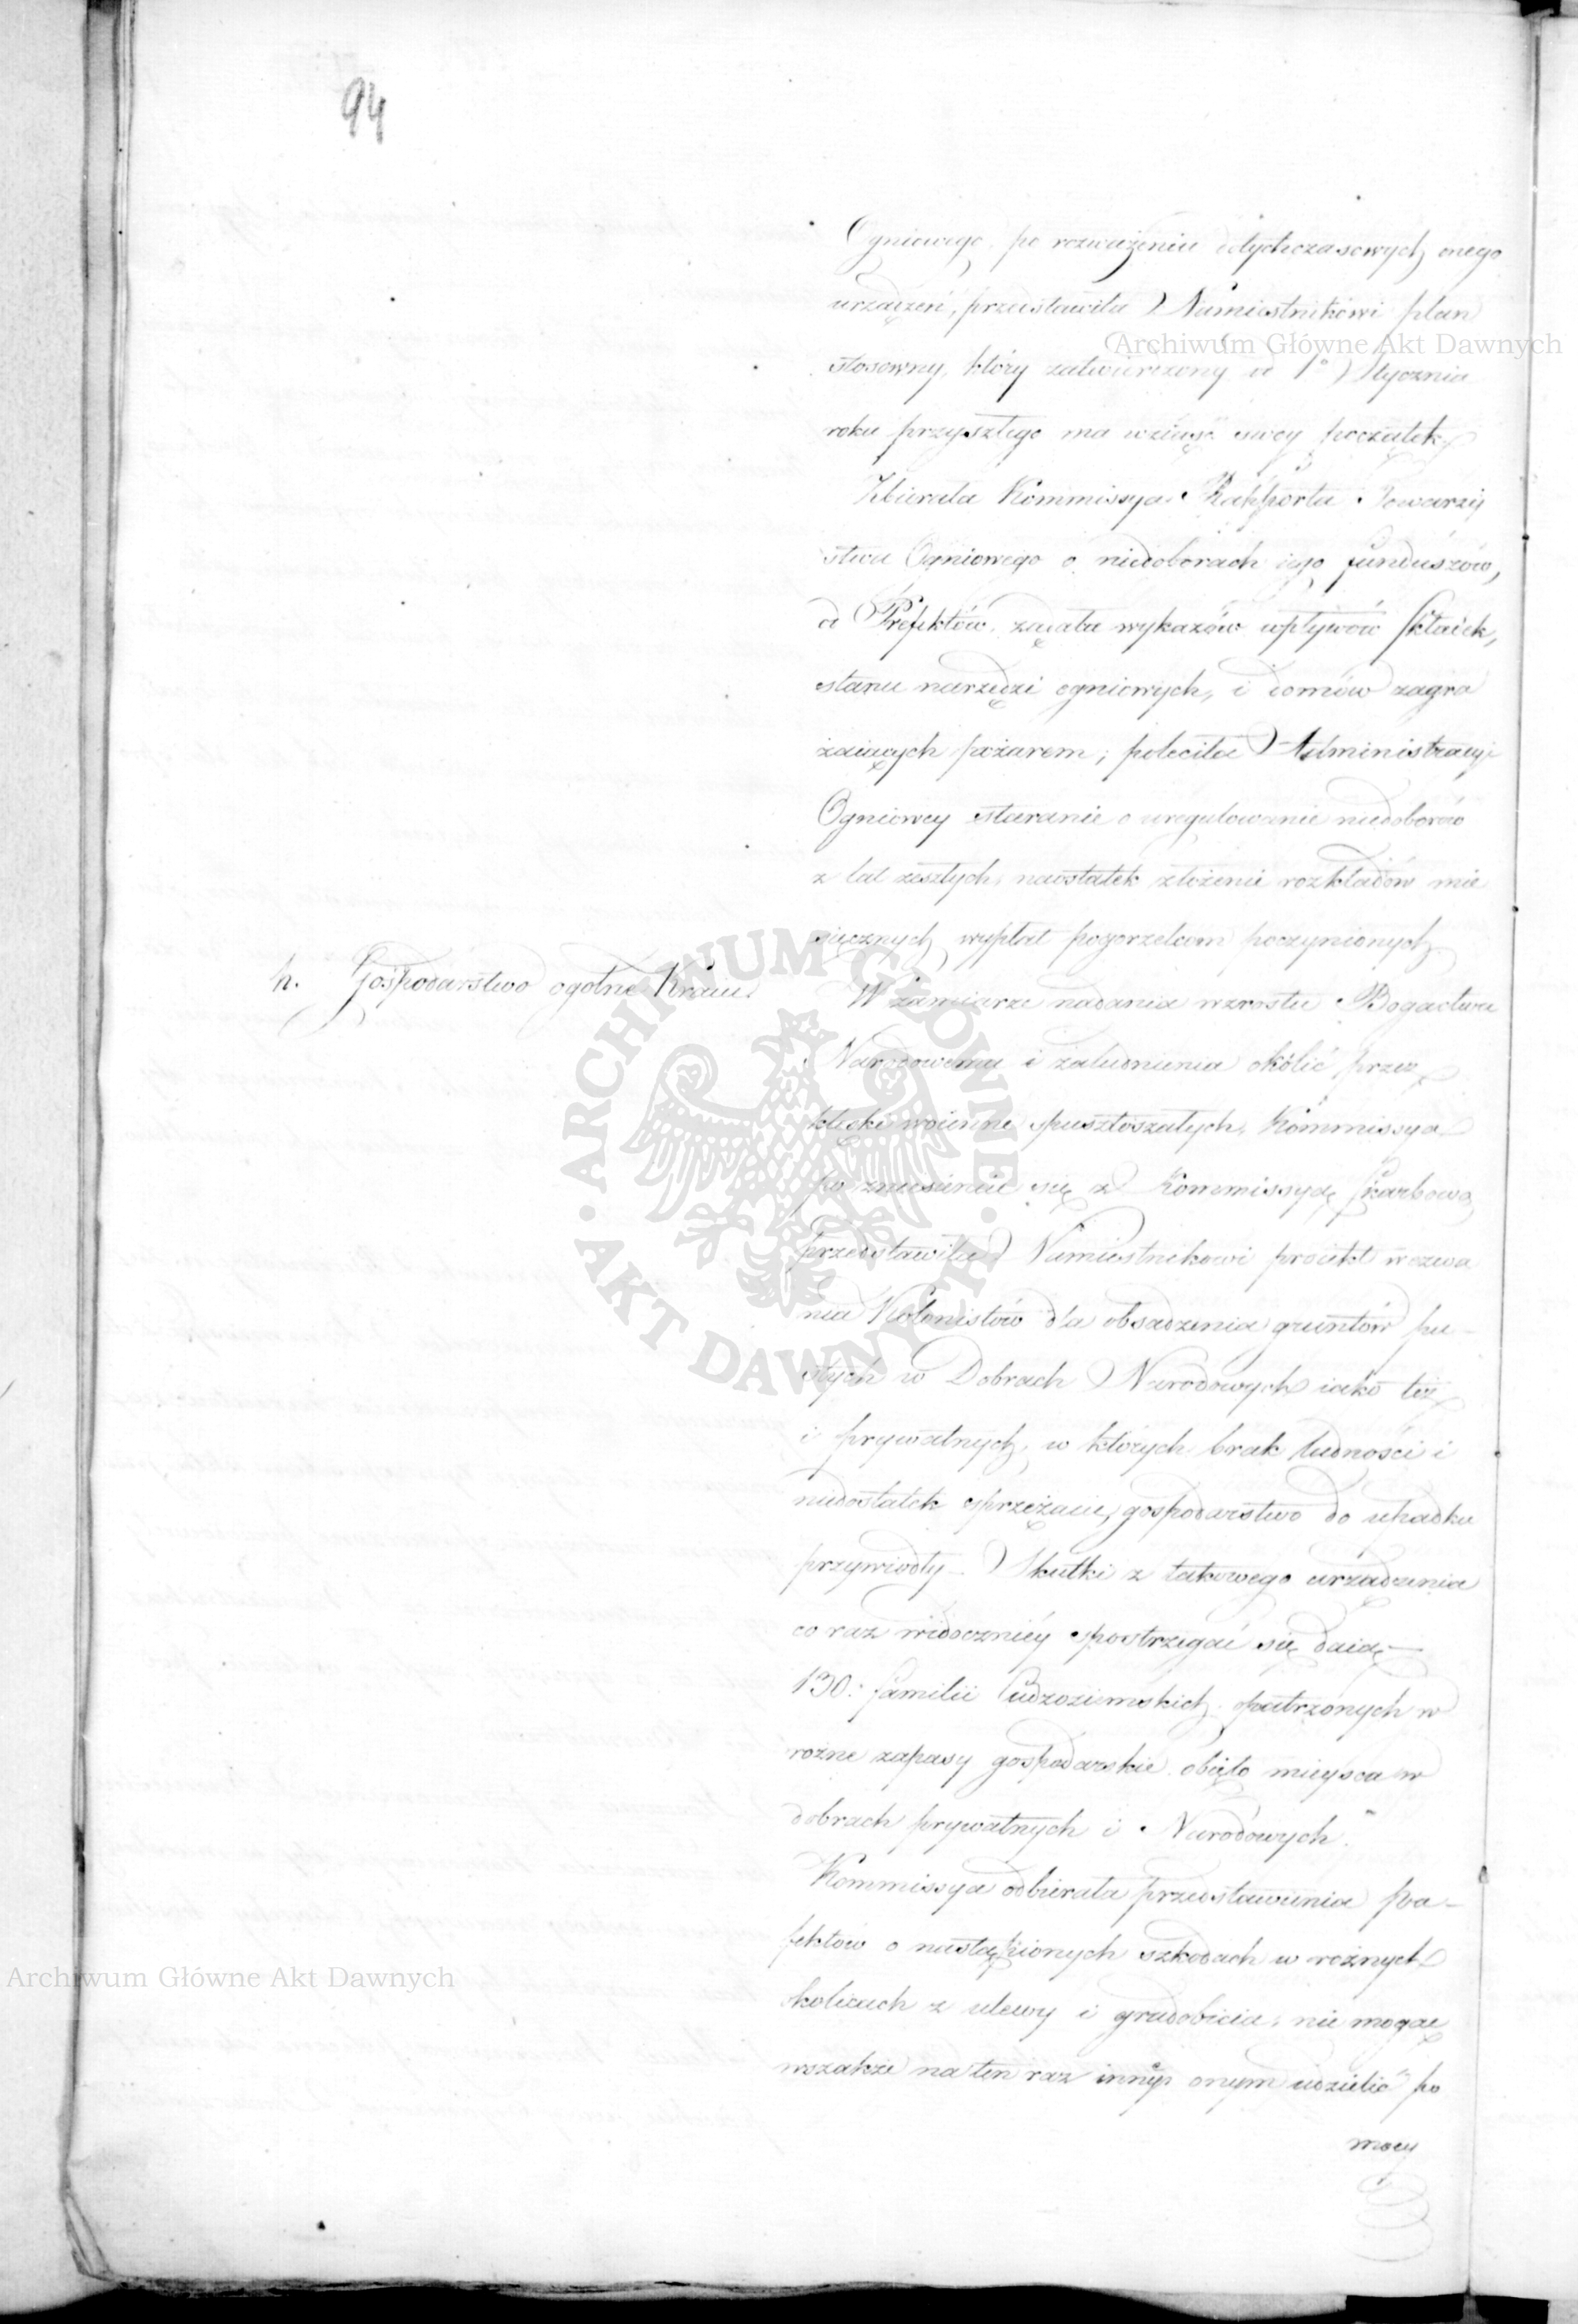 94
Ogniowego, po rozważeniu dotychczasowych onego
urządzeń, przedstawiła Namiestnikowi plan
stosowny, który zatwierdzony od 1o Stycznia
roku przyszłego ma wziąść swoy początek.
Zbierała Kommissya Rapporta Towarzy
stwa Ogniowego o niedoborach iego funduszów,
od Prefektów żądała wykazów wpływów składek,
stanu narzędzi ogniowych, i domów zagra
żaiących pożarem; poleciła Administracyi
Ogniowey staranie o uregulowanie niedoborów
z lat zeszłych, naostatek złożenie rozkładów mie
sięcznych wypłat pogorzelcom poczynionych.
h. Gospodarstwo ogolne Kraiu.
W zamiarze nadania wzrostu Bogactwu
Narodowemu i zaludnienia okolic przez
klęski woienne spustoszałych, Kommissya
po zniesieniu się z Kommissyą Skarbową
przedstawiła Namiestnikowi proiekt wezwa
nia Kolonistów dla obsadzenia gruntów pu-
stych w Dobrach Narodowych iako też
i prywatnych, w których brak ludności i
niedostatek sprzężaiu, gospodarstwo do upadku
przywiodły. Skutki z takowego urządzenia
co raz widoczniéy spostrzegać się daią—
130: familii Cudzoziemskich opatrzonych w
rożne zapasy gospodarskie obięło mieysca w
dobrach prywatnych i Narodowych.
Kommissya odbierała przedstawienia Pre-
fektow o nastąpionych szkodach w rożnych
okolicach z ulewy i gradobicia, nie mogąc
wszakże na ten raz inney onym udzielić po
mocy
Archiwum Główne Akt Dawnych
Archiwum Główne Akt Dawnych
ARCHIWUM GŁÓWNE • AKT DAWNYCH •